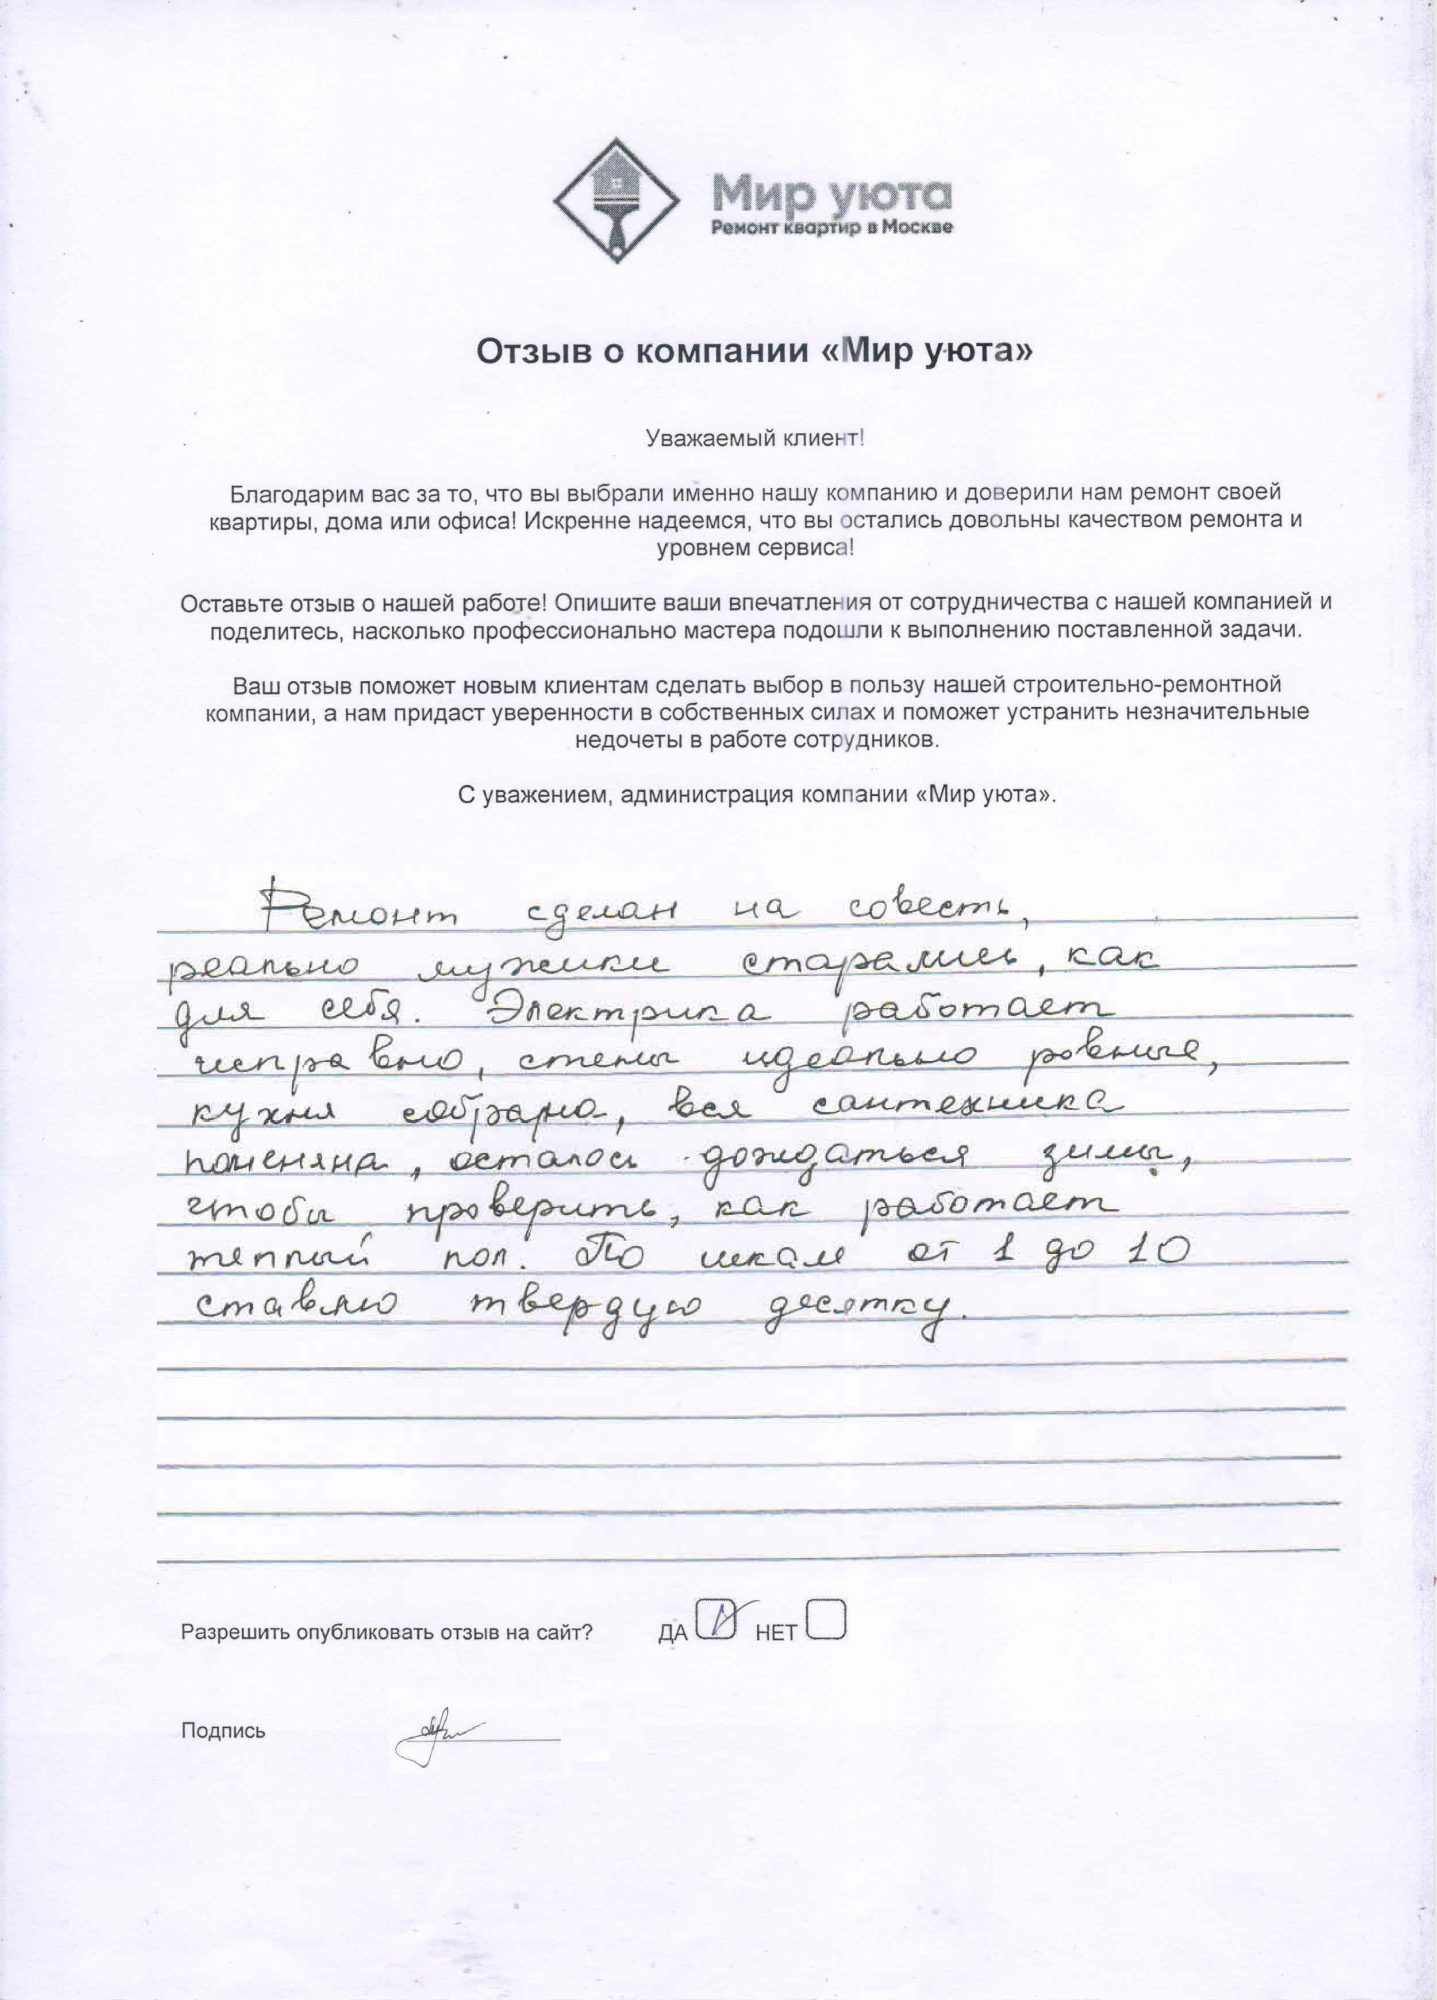 Мир уюта
Ремонт квартир в Москве
Отзыв о компании «Мир уюта»
Уважаемый клиент!
Благодарим вас за то, что вы выбрали именно нашу компанию и доверили нам ремонт своей
квартиры, дома или офиса! Искренне надеемся, что вы остались довольны качеством ремонта и
уровнем сервиса!
Оставьте отзыв о нашей работе! Опишите ваши впечатления от сотрудничества с нашей компанией и
поделитесь, насколько профессионально мастера подошли к выполнению поставленной задачи.
Ваш отзыв поможет новым клиентам сделать выбор в пользу нашей строительно-ремонтной
компании, а нам придаст уверенности в собственных силах и поможет устранить незначительные
недочеты в работе сотрудников.
С уважением, администрация компании «Мир уюта».
Ремонт сделан на совесть,
реально мужики старались, как
для себя. Электрика работает
исправно, стены идеально ровные,
кухня собрана, вся сантехника
поменяна, осталось дождаться зимы,
чтобы проверить, как работает
теплый пол. По шкале от 1 до 10
ставлю твердую десятку.
Разрешить опубликовать отзыв на сайт? ДА НЕТ
Подпись